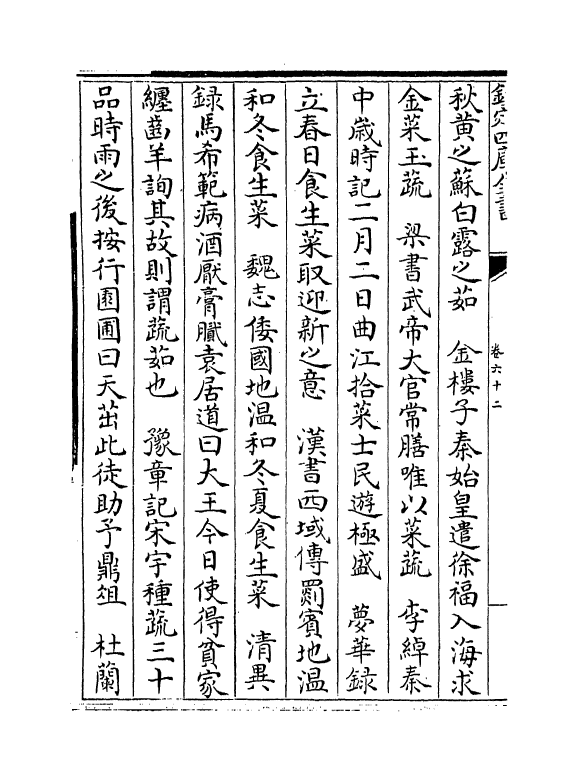 欽定四庫全書
卷六十二
秋黄之蘇白露之茹　金樓子秦始皇遣徐福入海求
金菜玉蔬　梁書武帝大官常膳唯以菜蔬　李綽秦
中嵗時記二月二日曲江拾菜士民遊極盛　夢華録
立春日食生菜取迎新之意　漢書西域傳罽賓地温
和冬食生菜　魏志倭國地温和冬夏食生菜　清異
録馬希範病酒厭膏膩袁居道曰大王今日使得貧家
纏齒羊詢其故則謂蔬茹也　豫章記宋宇種蔬三十
品時雨之後按行園圃曰天茁此徒助予鼎俎　杜蘭